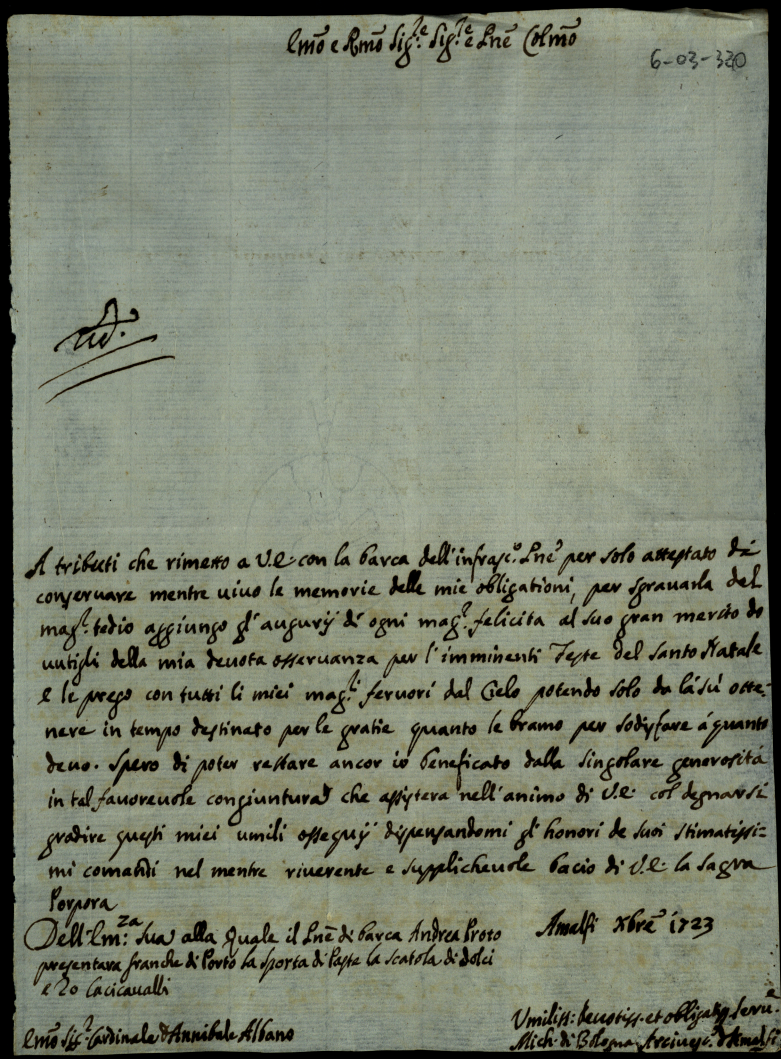 Emõ e Rmõ Sig.re Sig.re e Pnẽ Colmõ
6-03-320
A tributi che rimetto a V.E. con la barca dell'infrasc.o Pnẽ per solo attestato di
conservare mentre vivo le memorie delle mie obligationi, per sgravarla del
mag.r tedio aggiungo gl'augurij di ogni mag.r felicita al suo gran merito do
della mia devota osservanza per l'imminenti Feste del Santo Natale
e le prego con tutti li miei mag.ri fervori dal Cielo potendo solo da là sù otte-
nere in tempo destinato per le gratie quanto le bramo per sodisfare à quanto
devo. Spero di poter restare ancor io beneficato dalla singolare generosità
in tal favorevole congiuntura che assistera nell'animo di V.E. col degnarsi
gradire questi miei umili ossequij dispensandomi gl'honori de suoi stimatissi=
mi comandi nel mentre riverente e supplichevole bacio di V.E. la Sagra
Porpora
Dell'Em.za Sua alla Quale il Pnẽ di barca Andrea Proto
Amalfi Xbrẽ 1723
presentara franche di Porto la sporta di Paste la scatola di dolci
e 20 Cacicavalli
Umiliss: devotiss. et obligatiss Serv.e
Emõ Sig.r Cardinale d'Annibale Albano
Mich. di Bologna Arcivesc.o d'Amalfi